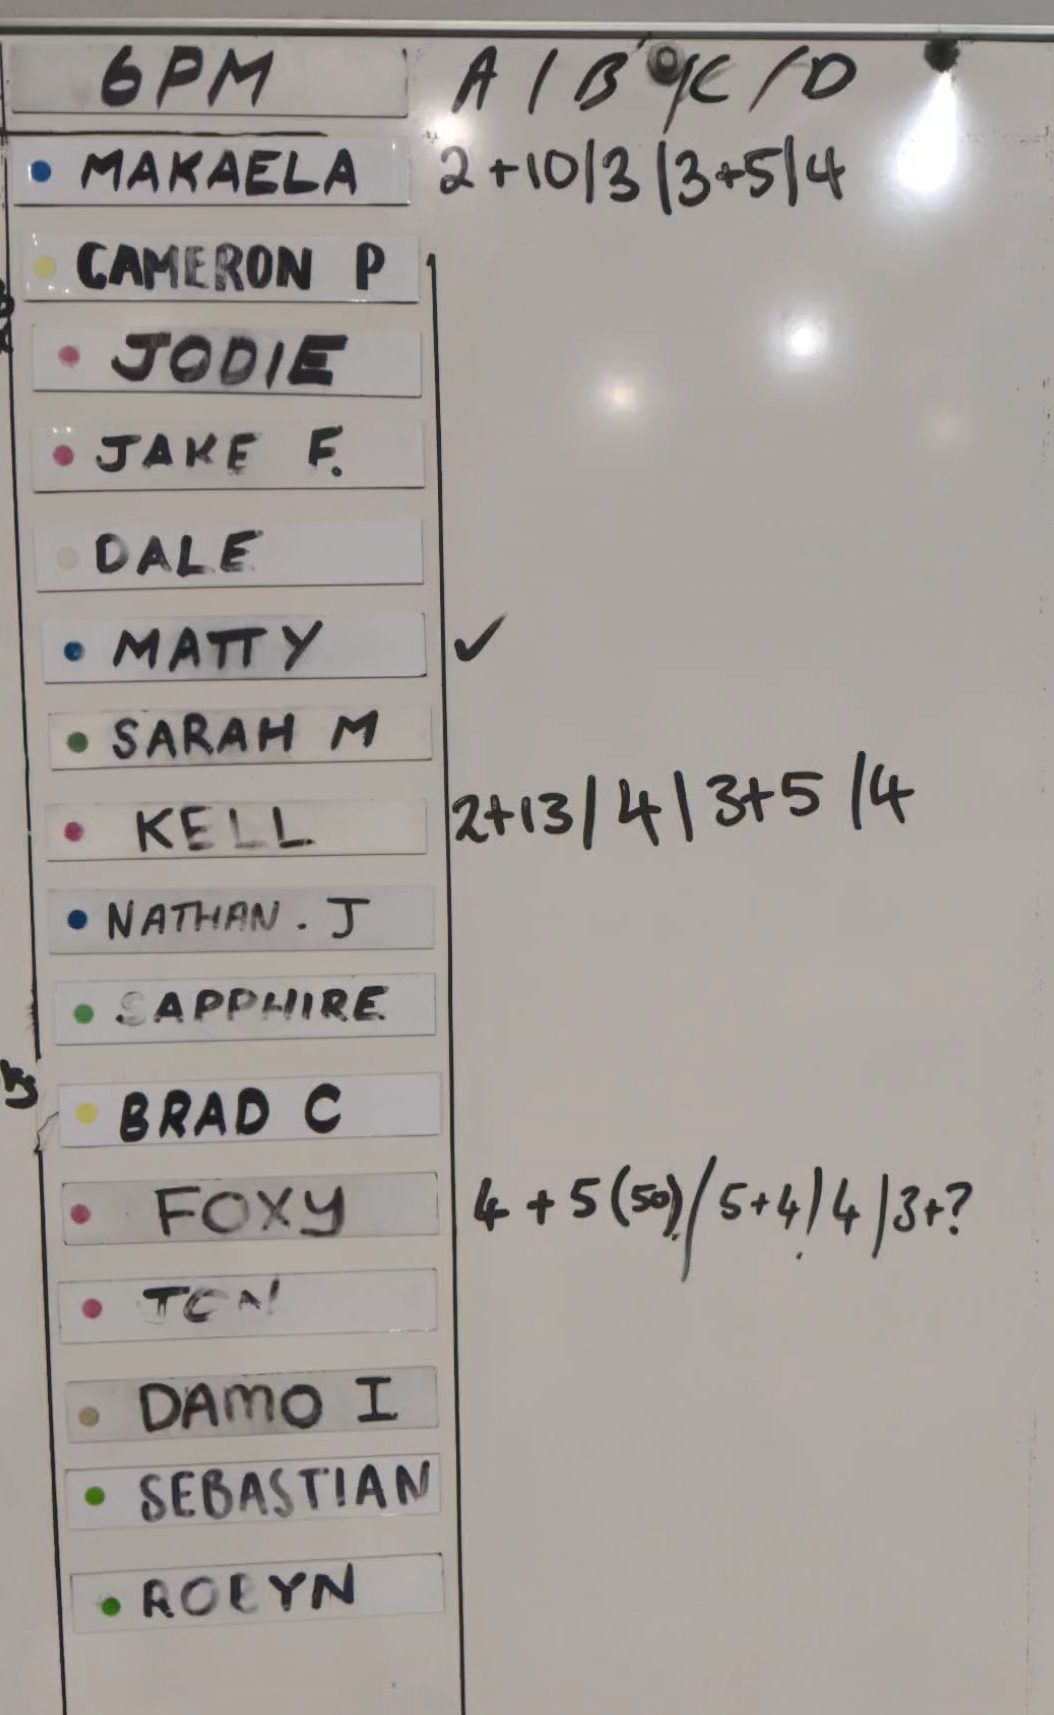 6PM A / B / C / D
MAKAELA 2+10/3/3+5/4
CAMERON P
JODIE
JAKE F.
DALE
MATTY ✓
SARAH M
KELL 2+13/4/3+5/4
NATHAN. J
SAPPHIRE
BRAD C
FOXY 4+5(50)/5+4/4/3+?
DAMO I
SEBASTIAN
ROBYN